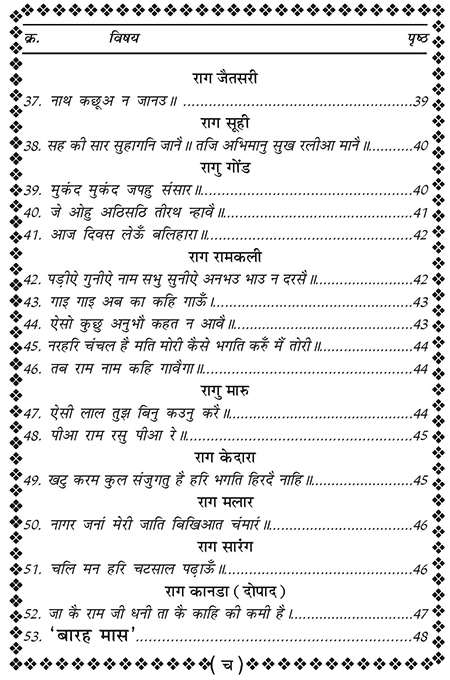 क्र. विषय पृष्ठ
राग जैतसरी
37. नाथ कछूअ न जानउ॥ ........................................39
राग सूही
38. सह की सार सुहागनि जानै॥ तजि अभिमानु सुख रलीआ मानै॥...........40
रागु गोंड
39. मुकंद मुकंद जपहु संसार॥.....................................40
40. जे ओहु अठिसठि तीरथ न्हावै॥..................................41
41. आज दिवस लेऊँ बलिहारा॥....................................42
राग रामकली
42. पड़ीऐ गुनीऐ नाम सभु सुनीऐ अनभउ भाउ न दरसै॥..................42
43. गाइ गाइ अब का कहि गाऊँ।...................................43
44. ऐसो कुछु अनुभौ कहत न आवै॥.................................43
45. नरहरि चंचल है मति मोरी कैसे भगति करुँ मैं तोरी॥..................44
46. तब राम नाम कहि गावैगा॥....................................44
रागु मारु
47. ऐसी लाल तुझ बिनु कउनु करै॥.................................44
48. पीआ राम रसु पीआ रे॥......................................45
राग केदारा
49. खटु करम कुल संजुगतु है हरि भगति हिरदै नाहि॥....................45
राग मलार
50. नागर जनां मेरी जाति बिखिआत चंमारं॥...........................46
राग सारंग
51. चलि मन हरि चटसाल पढ़ाऊँ॥.................................46
राग कानडा (दोपाद)
52. जा कै राम जी धनी ता कै काहि की कमी है।.......................47
53. ‘बारह मास’...............................................48
( च )